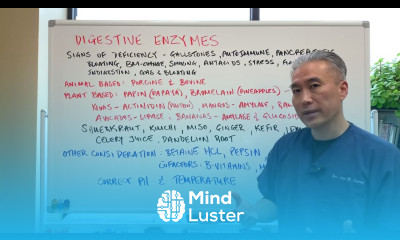 DIGESTIVE ENZYMES
SIGNS OF DEFICIENCY - GALLSTONES, AUTOIMMUNE, PANCREATITIS
BLOATING, SMOKING, ANTACIDS, STRESS,
INDIGESTION, GAS & BLOATING
ANIMAL BASED: PORCINE & BOVINE
PLANT BASED: PAPIN (PAPAYA), BROMELAIN (PINEAPPLES)
KIWIS - ACTINIDIN (PROTEIN), MANGOS - AMYLASE,
AVOCADOS - LIPASE, BANANAS - AMYLASE & GLUCOSID
SAUERKRAUT, KIMCHI, MISO, GINGER, KEFIR,
CELERY JUICE, DANDELION ROOT
OTHER CONSIDERATION: BETAINE HCL, PEPSIN
COFACTORS: B-VITAMINS,
CORRECT PH & TEMPERATURE
Mind
Luster